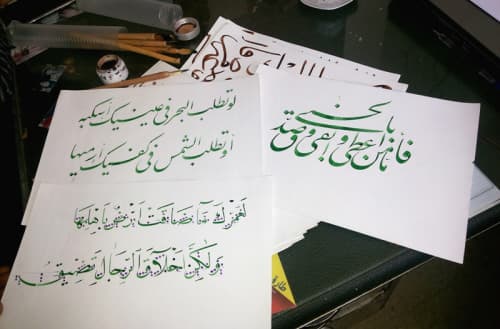 لو تطلب البحر في عينيك أسكبه
أو تطلب الشمس في كفيك أرميها
فأما من أعطى واتقى وصدق
بالحسنى
لعمرك ما ضاقت بلاد بأهلها
ولكن أخلاق الرجال تضيق